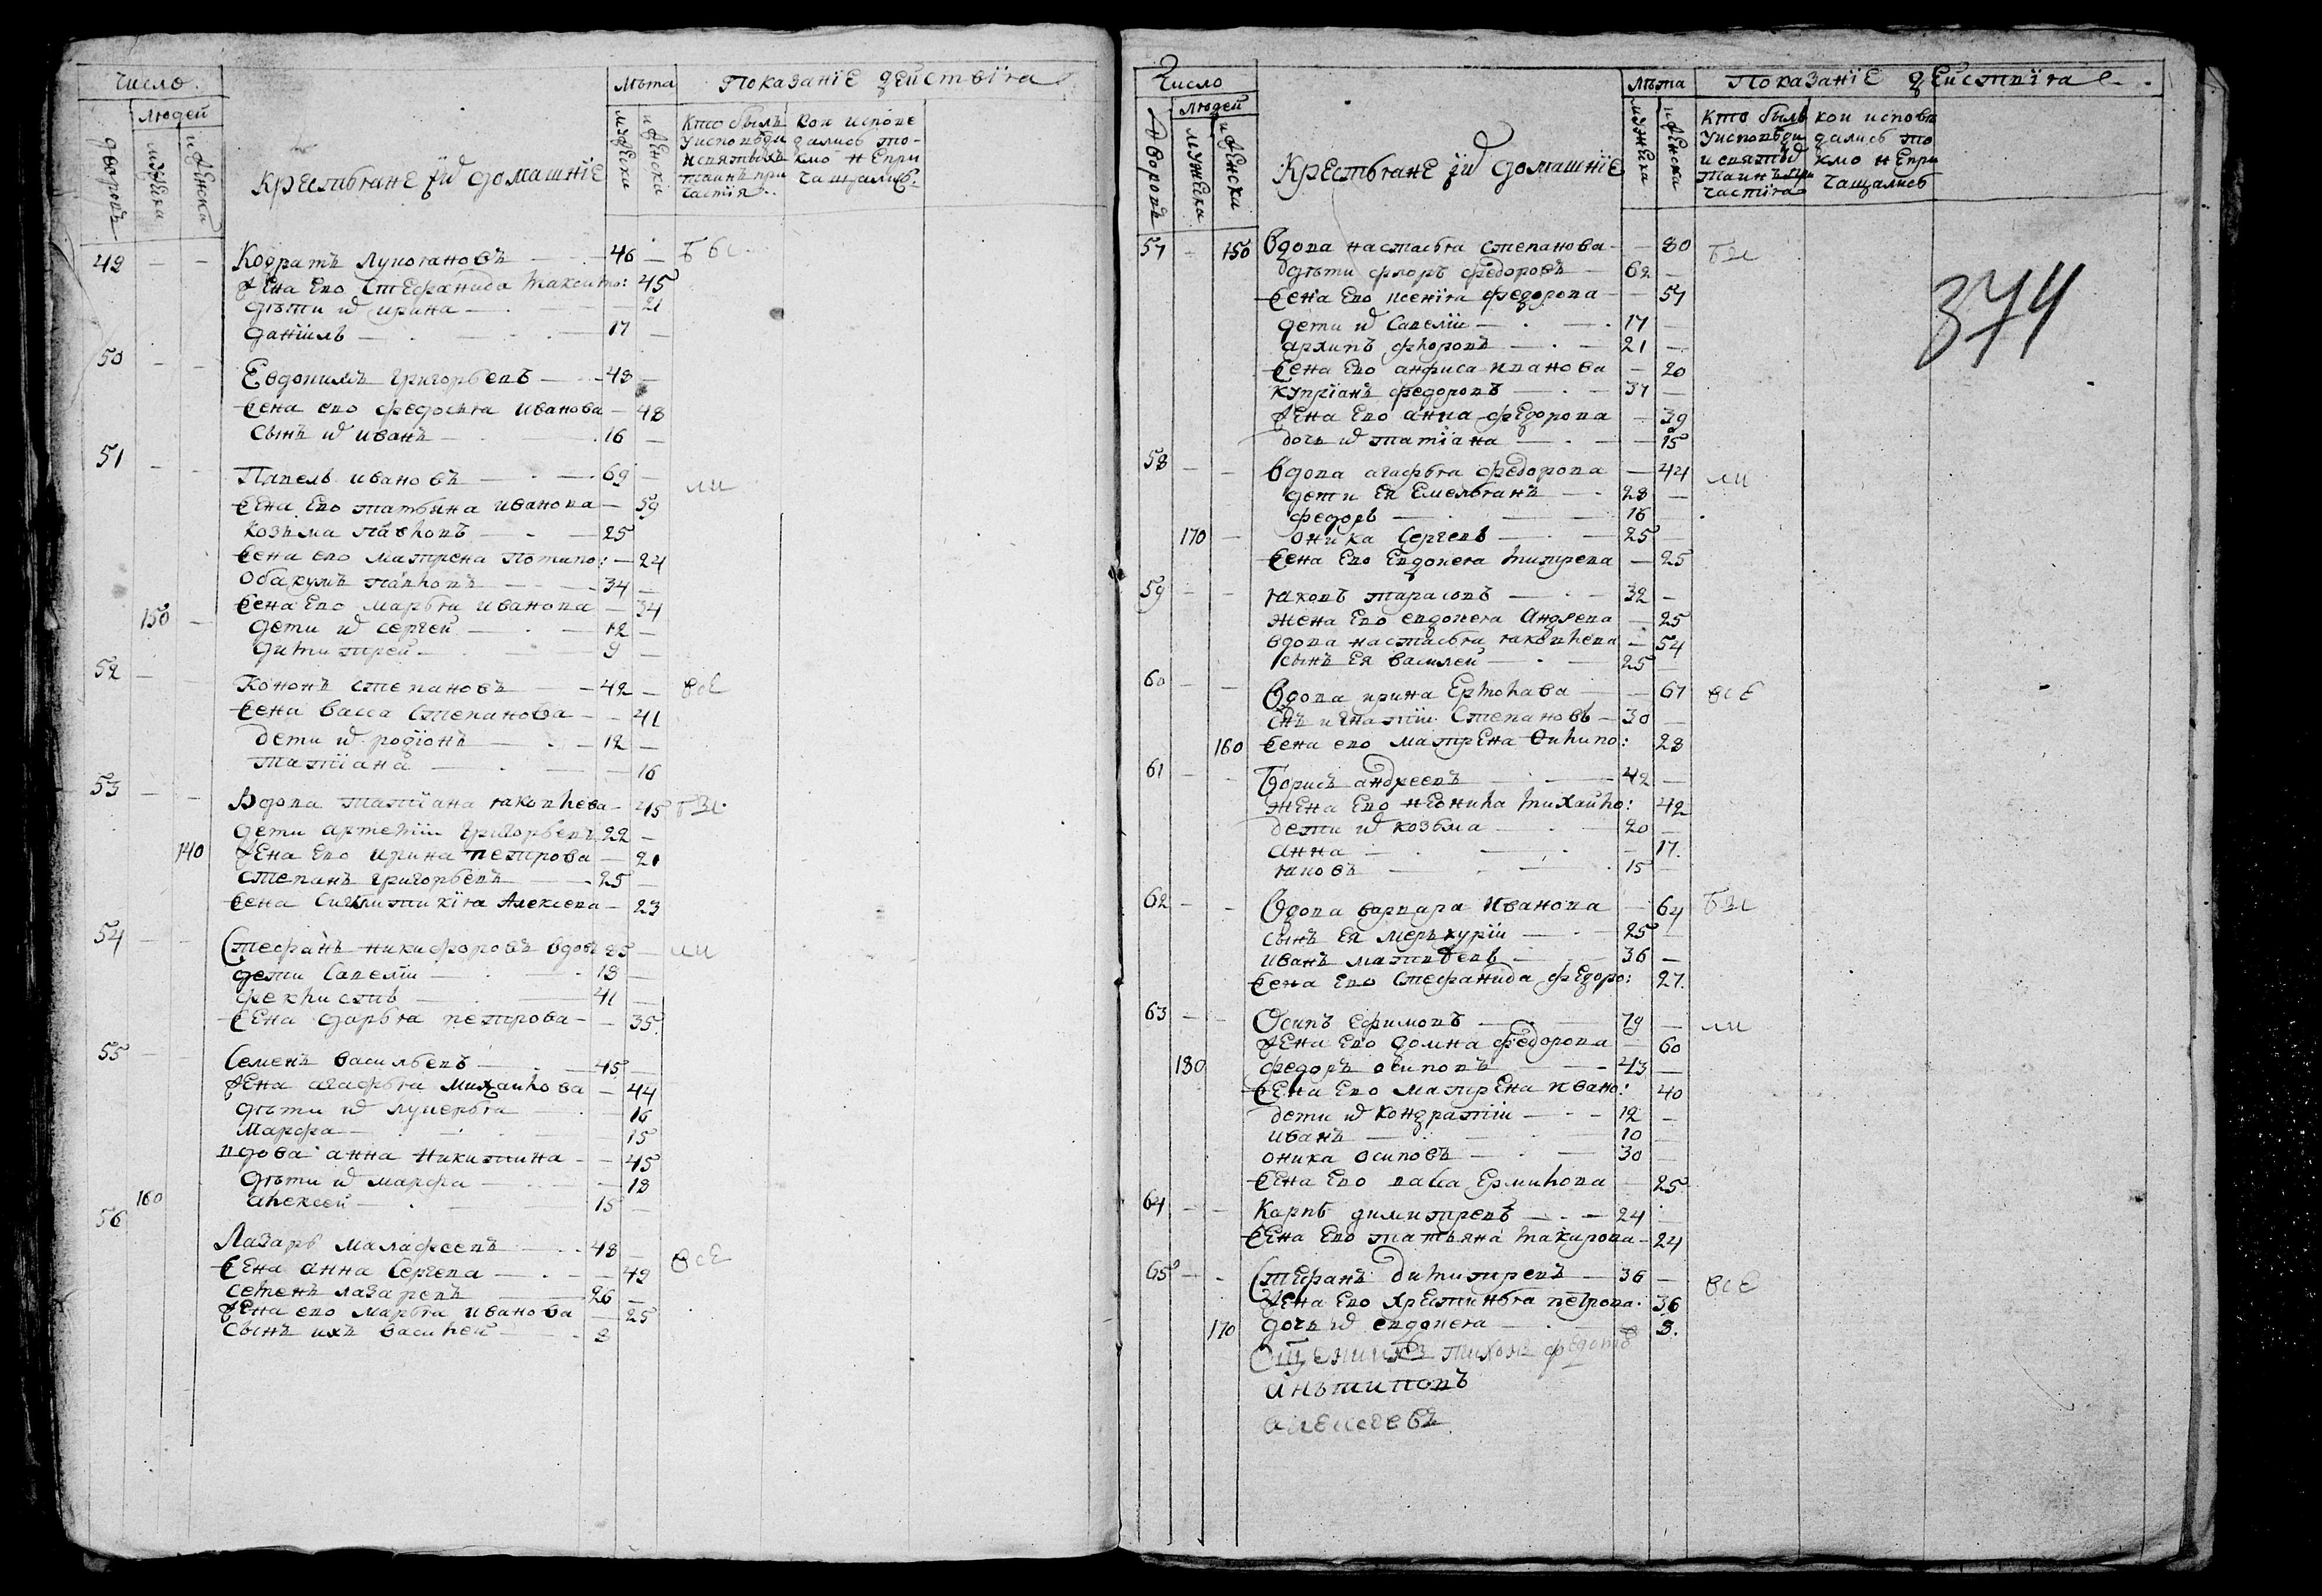 Число.
Лѣта Показанїе действїя
людей
дворовъ
мужеска
женска
Крестьяне їхъ домашнїе
мужеска
женска
Кто былъ
у исповѣди
и святыхъ
таинъ при
частїя
Кои испове
дались то-
кмо не при
чащались.
49 Кодратъ Лукояновъ 46
жена ево Стефанида Максимо: 45
дѣти их ирина 21
данїилъ 17
50 Евдокимъ григорьевъ 48
жена ево федосья иванова 48
сынъ их иванъ 16
51 Павелъ ивановъ 69
жена ево татьяна иванова 59
козьма павловъ 25
жена ево матрена Потапо: 24
обакумъ павловъ 34
жена ево марья иванова 34
130 дети их сергей 12
димитрей 9
52 Кононъ степановъ 42 все
жена васса степанова 41
дети их родїонъ 12
татїана 16
53 Вдова татїана яковлева 45
дети артемїи григорьевъ 22
140 жена ево ирина петрова 21
степанъ григорьевъ 25
жена Алексева 23
54 Стефанъ никифоровъ вдовъ 25
дети савелїи 18
феклистъ 41
жена дарья петрова 35.
55 Семенъ васильевъ 45
жена агафья михаилова 44
дѣти их лукерья 16
марфа 15
вдова анна никитина 45
дѣти их марфа 18
160 алексей 15
56 Лазарь малафеевъ 48 все
жена анна сергева 49
семенъ лазаревъ 26
жена ево марья иванова 25
сынъ ихъ василей 8
Число
Лѣта Показанїе действїя
людей
дворовъ
мужеска
женска
Крестьяне їхъ домашнїе
мужеска
женска
Кто былъ
у исповѣди
и святых
таинъ при
частїя
кои исповѣ
дались то
кмо не при
чащались
374
57 150 Вдова настасья степанова 80
дѣти флоръ федоровъ 62
жена ево ксенїя федорова 57
дети их савелїи 17
архипъ флоровъ 21
жена ево анфиса иванова 20
купрїанъ федоровъ 37
жена ево анна федорова 39
дочь их татїана 15
58 Вдова агафья федорова 44
дети ея емельянъ 28
федоръ 16
170 оника сергевъ 25
жена ево евдокея димтрева 25
59 яковъ тарасовъ 32
жена ево евдокея андрева 25
вдова настасья яковлева 54
сынъ ея василей 25
60 Вдова ирина ермолава 67 все
снъ игнатїи степановъ 30
160 жена ево матрена филипо: 28
61 Борисъ андреевъ 42
жена ево неонила михаило: 42
дети их козьма 20
анна 17.
яковъ 15
62 Вдова варвара иванова 64
сынъ ея меръкурїи 25
иванъ матвѣевъ 36
жена ево стефанида федоро: 27.
63 Осипъ ефимовъ 79
жена ево домна федорова 60
180 федоръ осиповъ 43
жена ево матрена ивано: 40
дети их кондратїи 12
иванъ 10
оника осиповъ 30
жена ево васса ермилова 25
64 Карпъ димитревъ 24
жена ево татьяна макарова 24
65 Стефанъ димитревъ 36 все
жена ево хрестинья петрова 36
170 дочь их евдокея 8.
Священникъ тихонъ федотъ
анътиповъ
алексеевъ